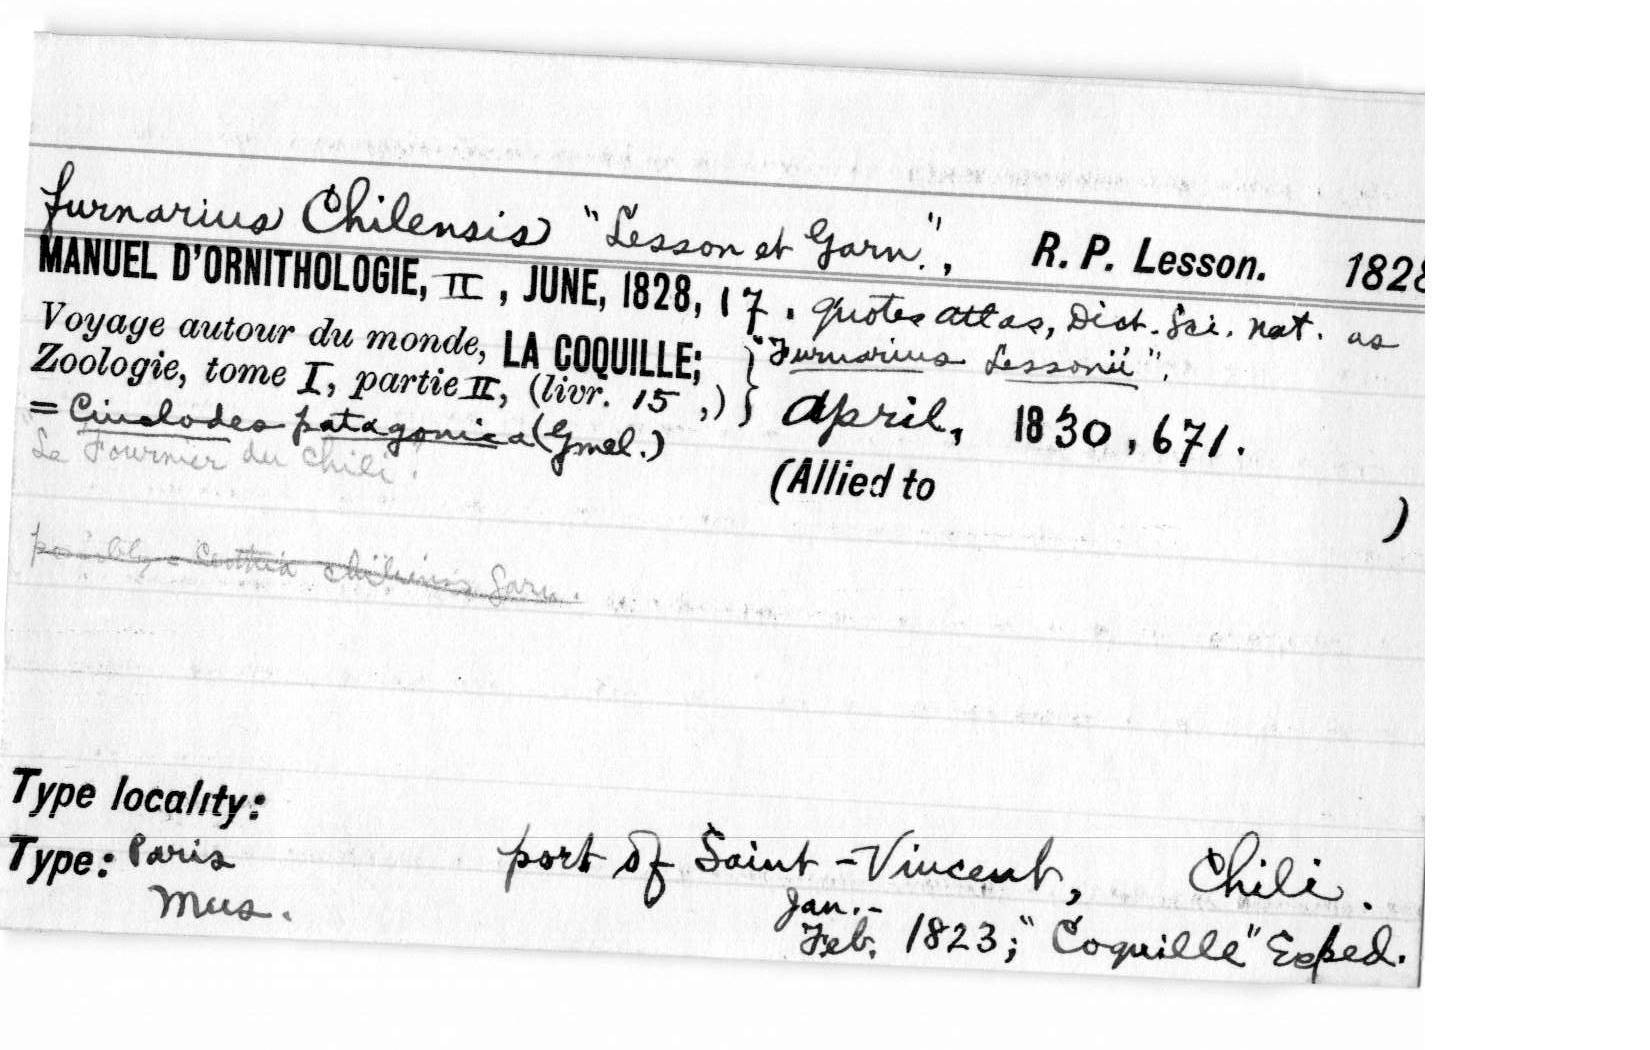 furnarius Chilensis "Lesson et Garn.", R. P. Lesson. 1828
MANUEL D'ORNITHOLOGIE, II, JUNE, 1828, 17. quotes atlas, Dict. Sci. Nat. as
"Furnarius Lessonii".
Voyage autour du monde, LA COQUILLE; }
Zoologie, tome I, partie II, (livr. 15 ,) } April, 1830, 671.
= Cinclodes patagonica (Gmel.)
"Le Fournier du Chili." (Allied to )
possibly = Certhia chilensis Garn.
Type locality:
Type: Paris Mus. port of Saint-Vincent, Chili.
Jan.-
Feb. 1823; "Coquille" Exped.